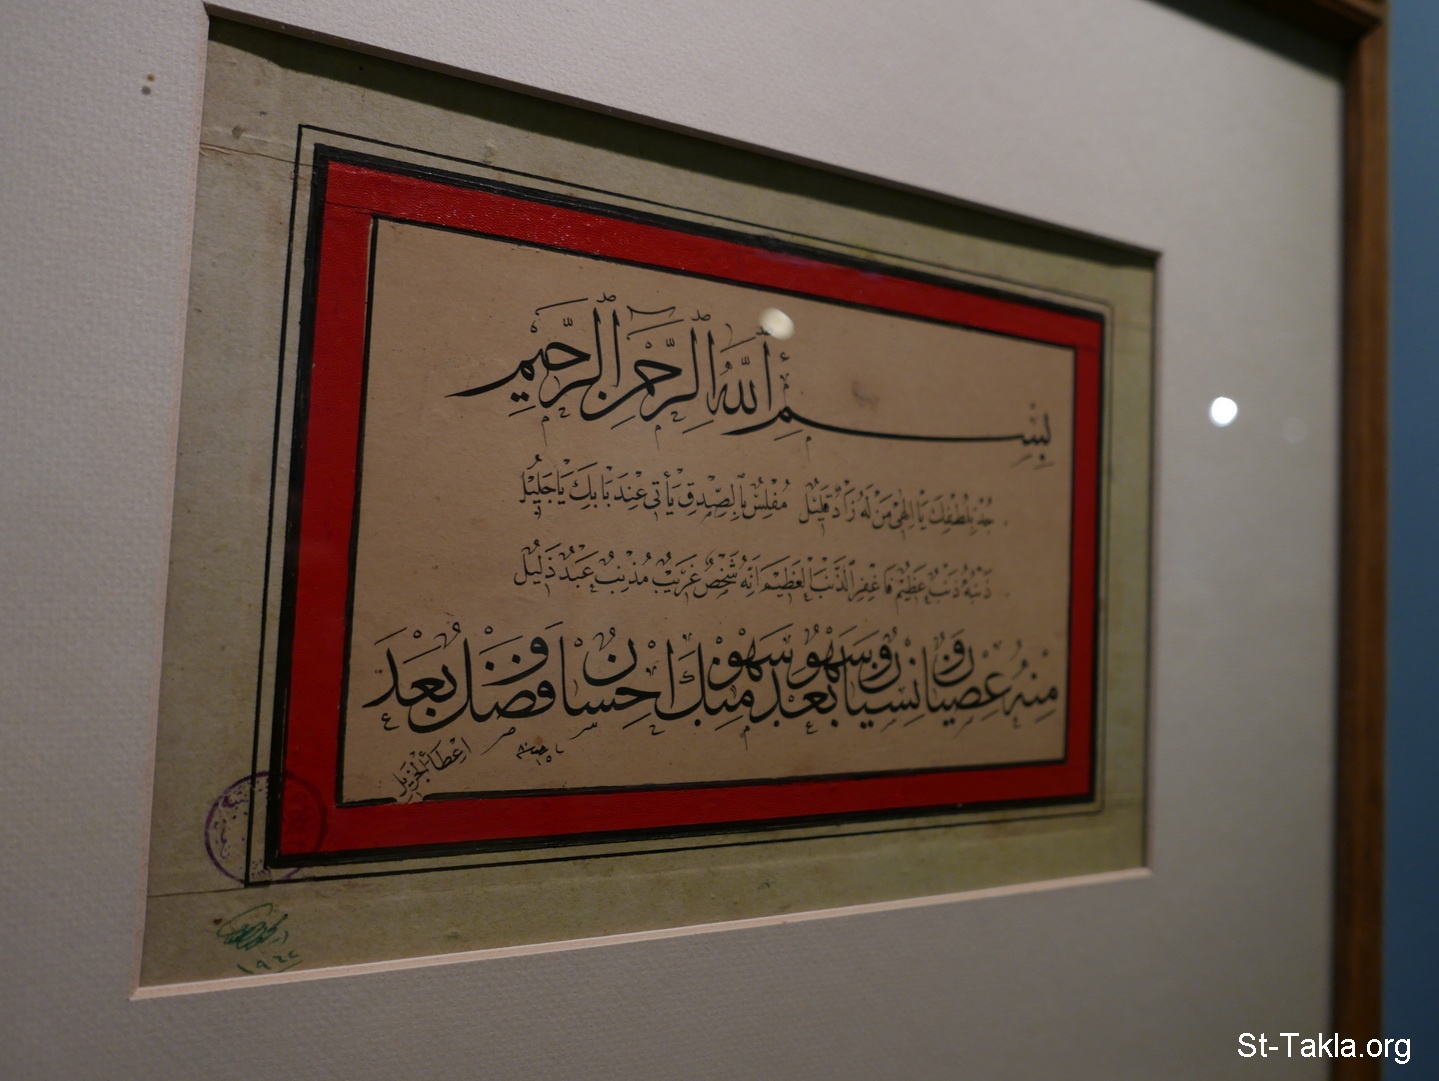 بِسْمِ اللّٰهِ الرَّحْمٰنِ الرَّحِيمِ
جُدْ بِلُطْفِكَ يَا اِلٰهِي مَنْ لَهُ زَادٌ قَلِيْلْ مُفْلِسٌ بِالصِّدْقِ يَأْتِي عِنْدَ بَابِكَ يَا جَلِيْلْ
ذَنْبُهُ ذَنْبٌ عَظِيْمٌ فَاغْفِرِ الذَّنْبَ الْعَظِيْمَ اِنَّهُ شَخْصٌ غَرِيْبٌ مُذْنِبٌ عَبْدٌ ذَلِيْلْ
مِنْهُ عِصْيَانٌ وَنِسْيَانٌ وَسَهْوٌ بَعْدَ سَهْوٍ مِنْكَ اِحْسَانٌ وَفَضْلٌ بَعْدَ
اِعْطَاءِ الْجَزِيلْ
St-Takla.org